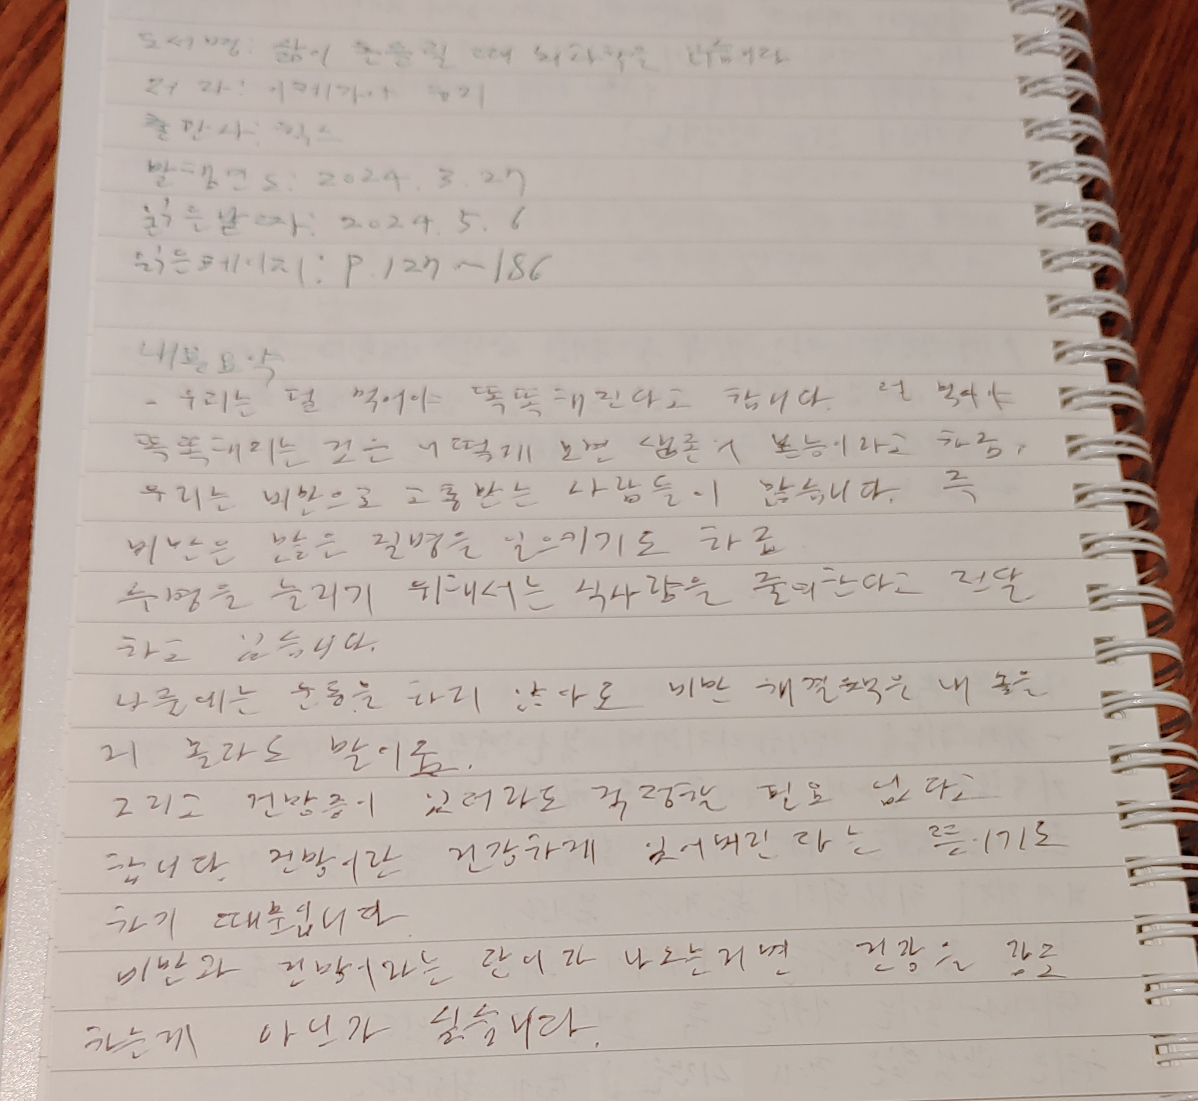 도서명: 삶이 흔들릴 때 뇌과학을 읽습니다
저 자: 이케가야 유지
출판사: 힉스
발행연도: 2024. 3. 27
읽은날짜: 2024. 5. 6
읽은페이지: P.127~186
내용요약
- 우리는 덜 먹어야 똑똑해진다고 합니다. 덜 먹어야
똑똑해지는 것은 어떻게 보면 생존 본능이라고 하죠.
우리는 비만으로 고통받는 사람들이 많습니다. 즉
비만은 많은 질병을 일으키기도 하죠
수명을 늘리기 위해서는 식사량을 줄여한다고 전달
하고 있습니다.
나중에는 운동을 하지 않아도 비만 해결책은 내 놓을
지 몰라도 말이죠.
그리고 건망증이 있더라도 걱정할 필요 없다고
합니다. 건망이란 건강하게 잊어버린다는 뜻이기도
하기 때문입니다
비만과 건망이라는 단어가 나오는거면 건강을 강조
하는게 아닌가 싶습니다.